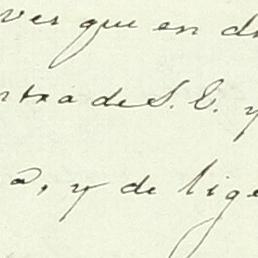 ver que en
de S. E. y
a, y de lige